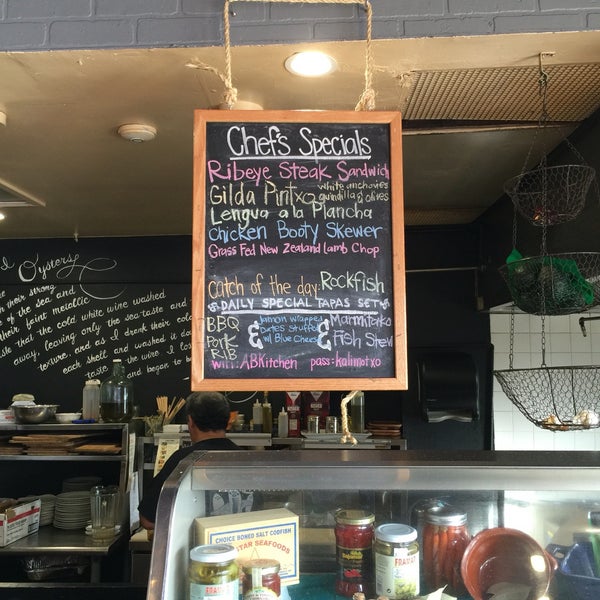 Chef's Specials
Ribeye Steak Sandwich
Gilda Pintxo white anchovies
guindilla & olives
Lengua a la Plancha
Chicken Booty Skewer
Grass Fed New Zealand Lamb Chop
Catch of the day: Rockfish
Daily Special Tapas Set
BBQ
Pork
Rib
&
Jamon Wrapped
Dates Stuffed
w/ Blue Cheese
&
Marmitako
Fish Stew
wifi: ABKitchen pass: kalimotxo
Oysters
with their strong
of the sea and
their faint metallic
taste that the cold white wine washed
away, leaving only the sea taste and
texture, and as I drank their cold
each shell and washed it down
taste of the wine I lost
and began to be
CHOICE BONED SALT CODFISH
STAR SEAFOODS